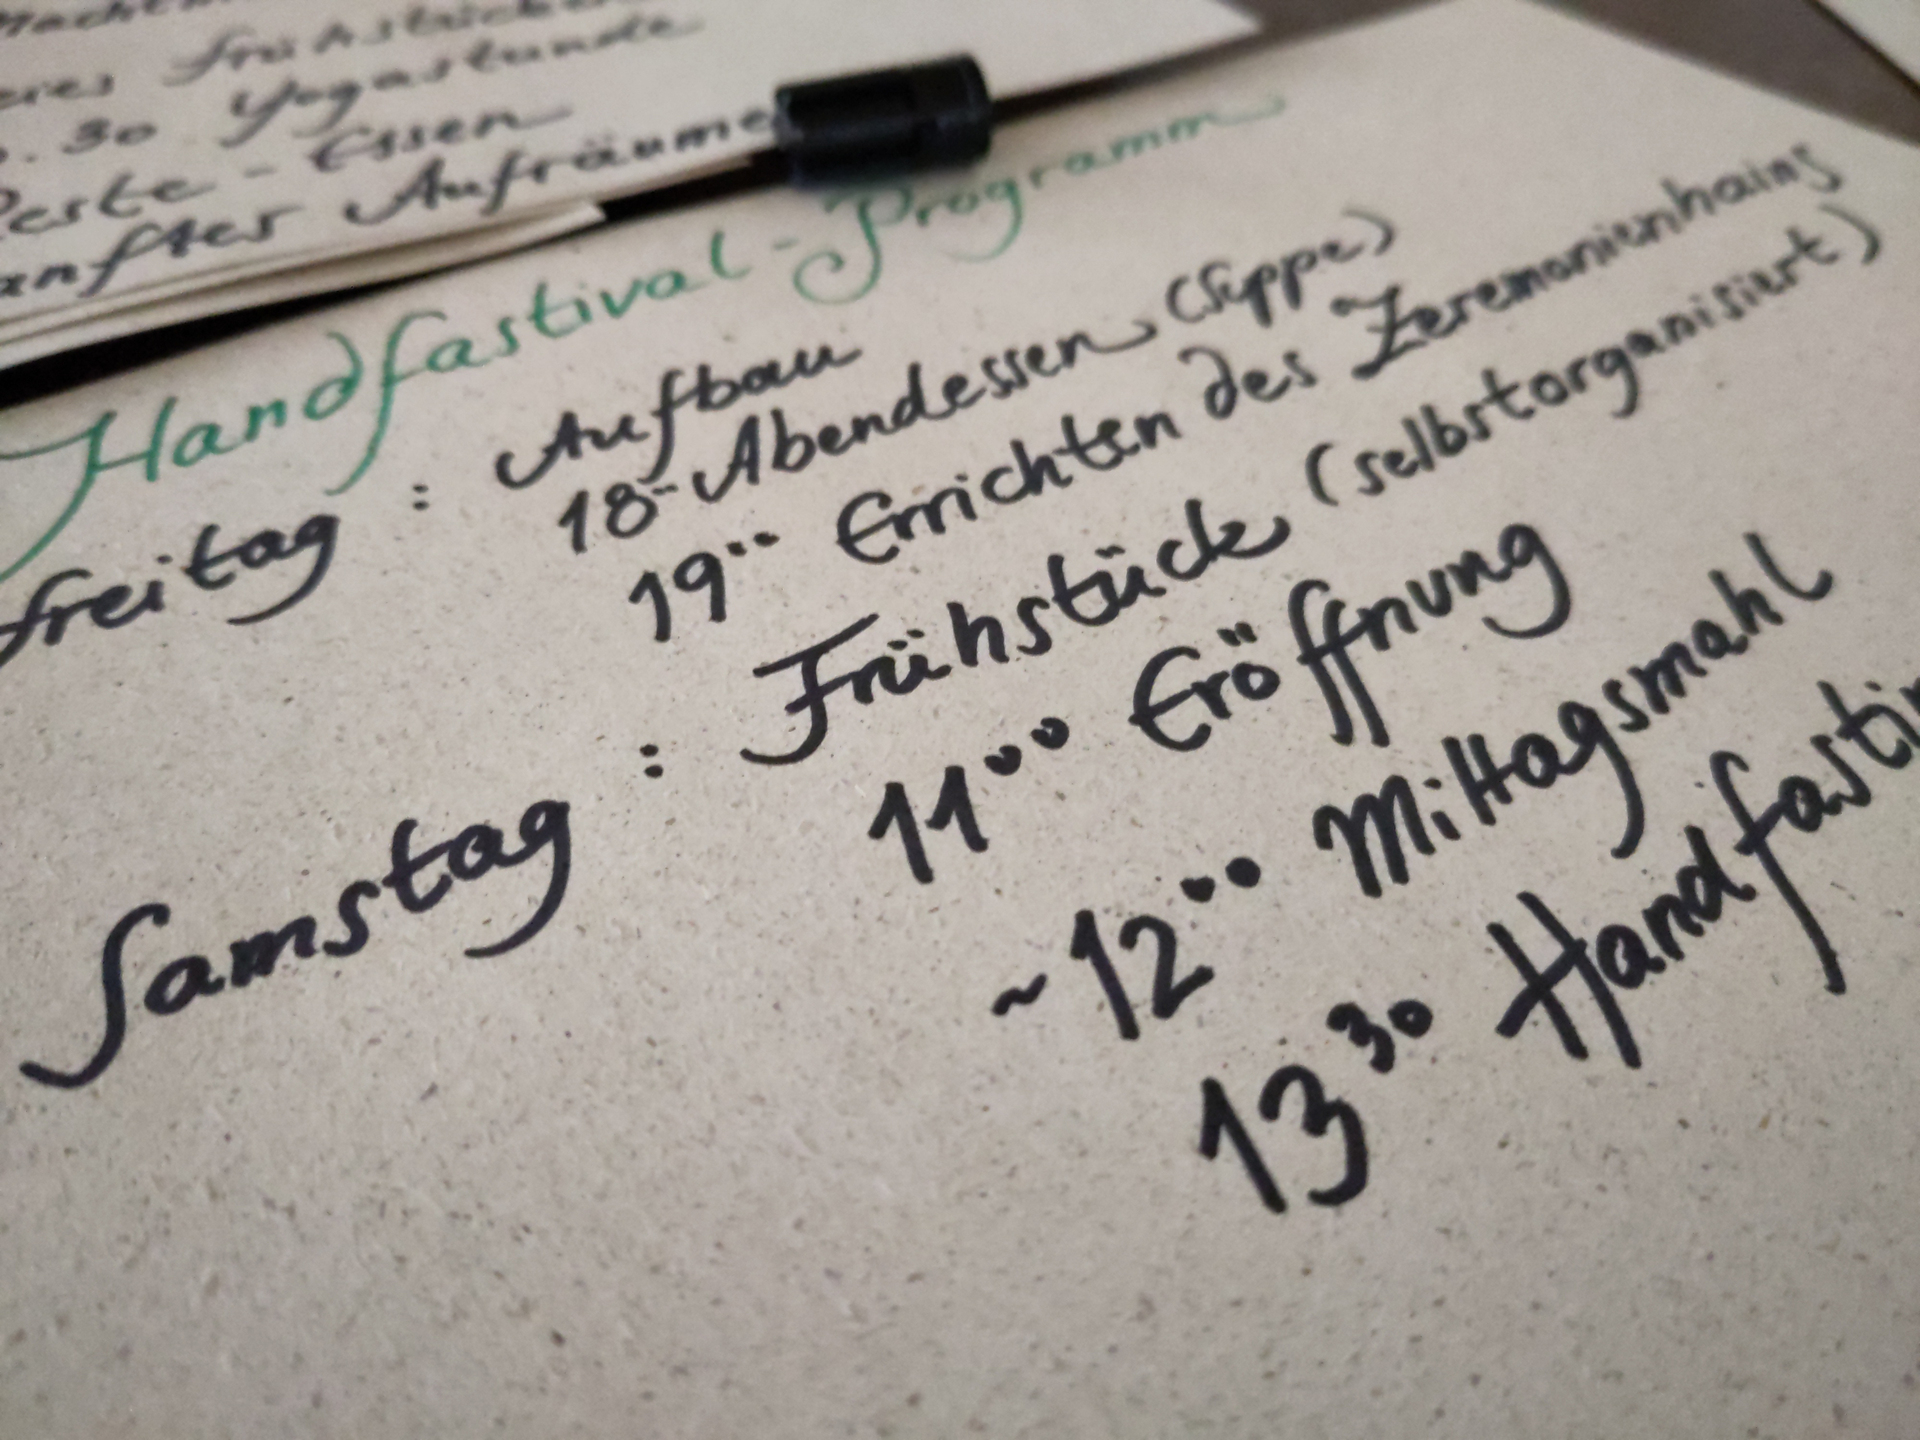 Frühstück
30 Yogastunde
Reste - Essen
Aufräume
Handfastival - Programm
Freitag : Aufbau
18⁰⁰ Abendessen (Suppe)
19⁰⁰ Errichten des Zeremonienhains
Samstag : Frühstück (selbstorganisiert)
11⁰⁰ Eröffnung
~12⁰⁰ Mittagsmahl
13³⁰ Handfastin